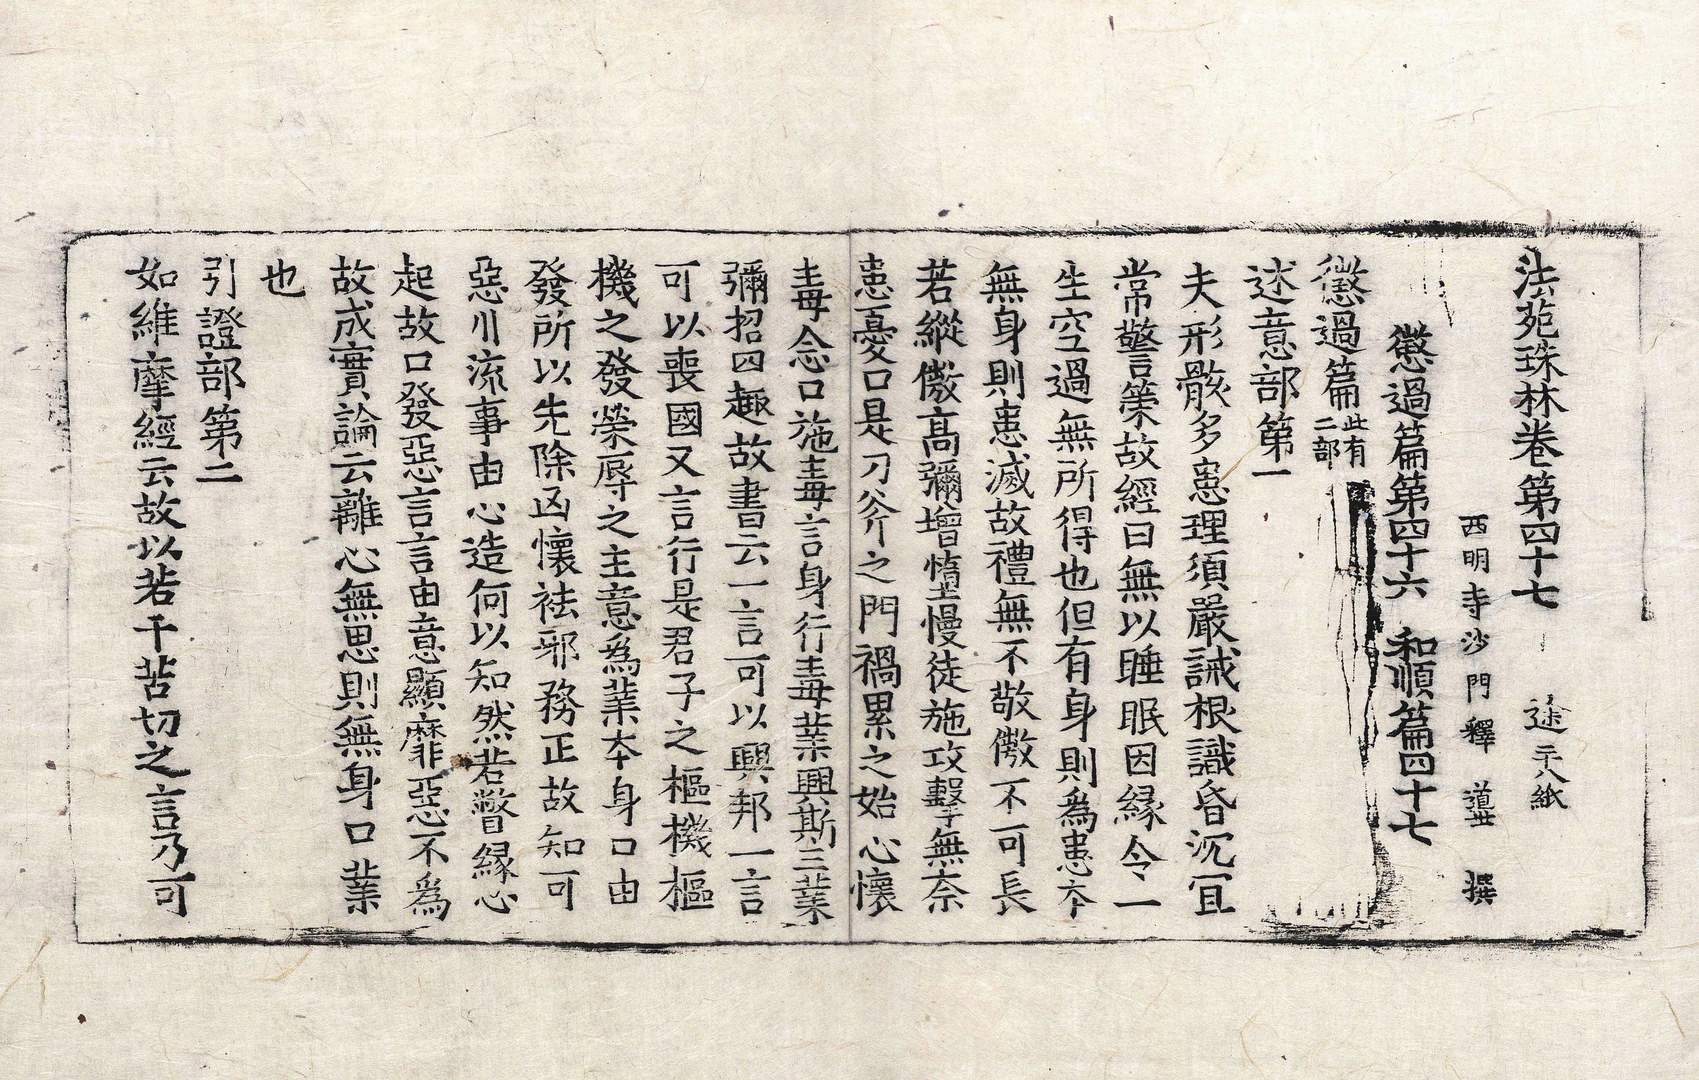 法苑珠林卷第四十七　途　二十八紙
西明寺沙門釋　道世　撰
懲過篇第四十六　和順篇四十七
懲過篇 此有二部
述意部第一
夫形骸多患理須嚴誡根識昏沉冝
常警策故經曰無以睡眠因緣令一
生空過無所得也但有身則爲患本
無身則患滅故禮無不敬儌不可長
若縱儌高彌增憍慢徒施攻擊無奈
患憂口是刀斧之門禍累之始心懷
毒念口施毒言身行毒業興斯三業
彌招四趣故書云一言可以興邦一言
可以喪國又言行是君子之樞機樞
機之發榮辱之主意爲業本身口由
發所以先除凶懷袪邪務正故知可
惡川流事由心造何以知然若瞥緣心
起故口發惡言言由意顯靡惡不爲
故成實論云離心無思則無身口業
也
引證部第二
如維摩經云故以若干苦切之言乃可